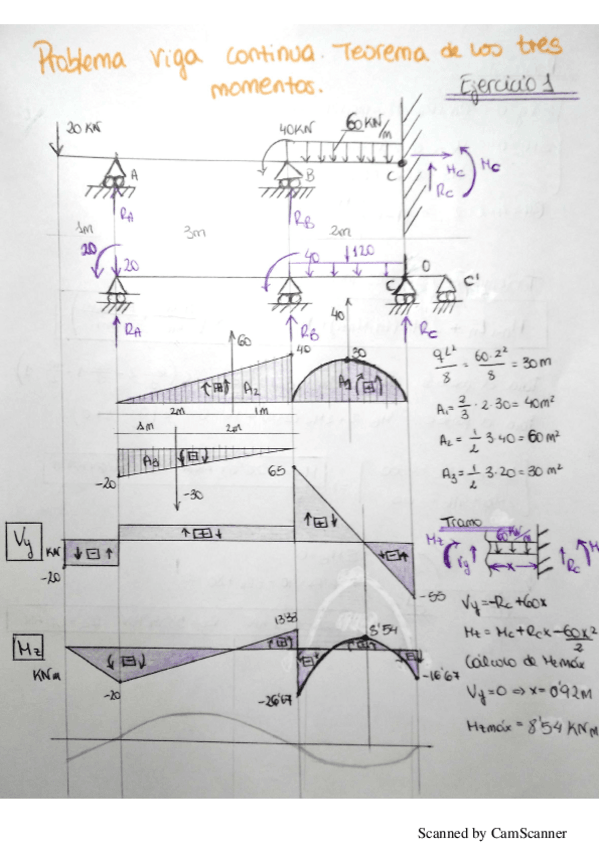 Problema viga continua. Teorema de los tres
momentos.
Ejercicio 1
20 KN
40KN
60 KN/m
A
B
C
Mc
Hc
Rc
RA
RB
1m
3m
2m
20
20
40
120
C
0
C'
RA
RB
Rc
60
40
40
30
A2
A1
2m
1m
1m
2m
A3
-20
-30
qL²/8 = 60·2²/8 = 30m
A1 = 2/3 · 2·30 = 40m²
A2 = 1/2 3·40 = 60m²
A3 = 1/2 3·20 = 30m²
65
Vy
KN
-20
-55
Tramo
60 KN/m
Mz
Vy
x
Rc
Mc
Vy = -Rc + 60x
Mz = Mc + Rc x - 60x²/2
Cálculo de Mzmáx
Vy = 0 ⇒ x = 0'92m
Mzmáx = 8'54 KNm
Mz
KNm
13'33
8'54
-20
-26'67
-16'67
Scanned by CamScanner